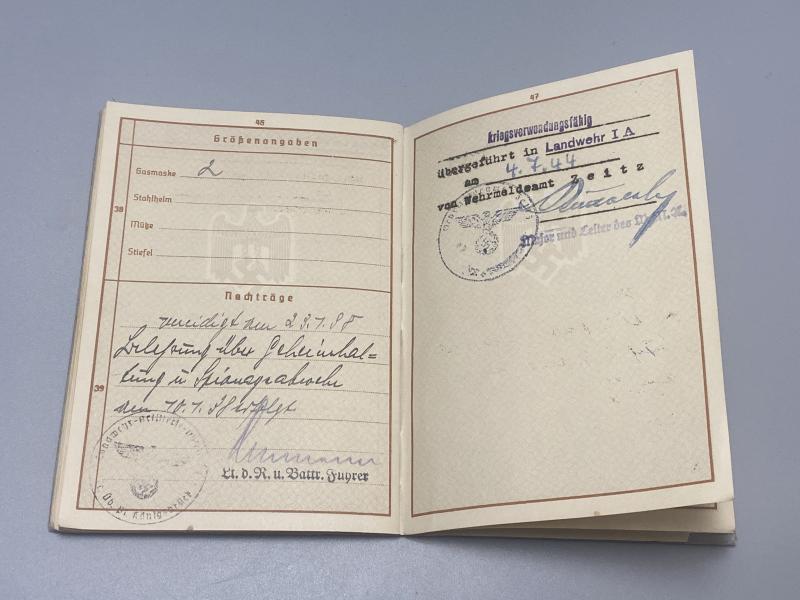 46
Größenangaben
Gasmaske 2
Stahlhelm
38
Mütze
Stiefel
Nachträge
vereidigt am 23.1.38
Belehrung über Geheimhal=
39
tung u. Spionageabwehr
am 10.1.38 erfolgt
Lt. d. R. u. Battr. Führer
47
kriegsverwendungsfähig
übergeführt in Landwehr I A
am 4.7.44
von Wehrmeldeamt Zeitz
Major und Leiter des W.M.A.